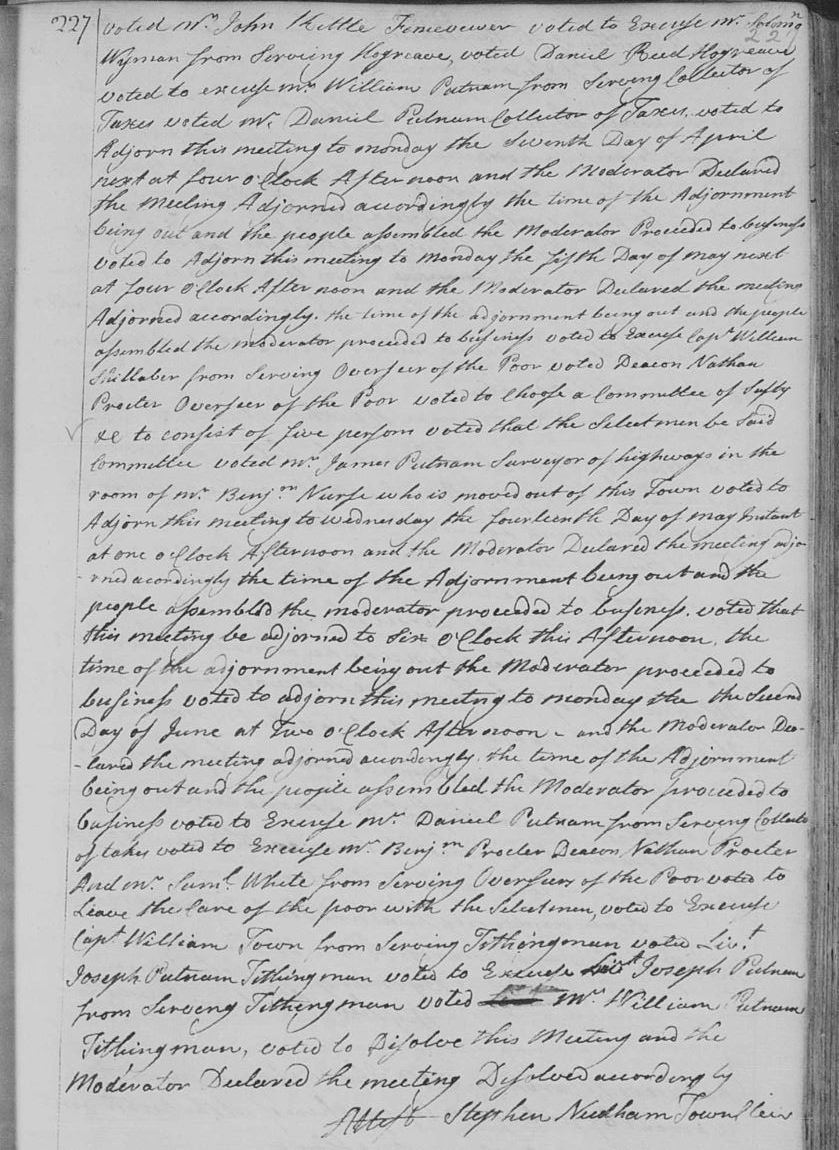 227 voted Mr. John Kettle Fenceviewer voted to Excuse Mr. Solomn
227
Wyman from Serving Hogreave, voted Daniel Reed Hogreave
voted to excuse Mr. William Putnam from Serving Collector of
Taxes voted Mr. Daniel Putnam Collector of Taxes. voted to
Adjorn this meeting to monday the Seventh Day of April
next at four o'Clock After noon and the Moderator Declared
the Meeting Adjorned accordingly the time of the Adjornment
being out and the people assembled the Moderator Proceded to business
voted to Adjorn this meeting to Monday the fifth Day of may next
at four o'Clock After noon and the Moderator Declared the meeting
Adjorned accordingly. the time of the adjornment being out and the people
assembled the moderator proceeded to business voted to Excuse Capt. William
Shillaber from Serving Overseer of the Poor voted Deacon Nathan
Procter Overseer of the Poor voted to Choose a Committee of Safty
&c to consist of five persons voted that the Selectmen be Said
Committee voted Mr. James Putnam Surveyor of highways in the
room of Mr. Benjmn Nurse who is moved out of this Town voted to
Adjorn this meeting to Wednesday the fourteenth Day of may Instant
at one o'Clock Afternoon and the Moderator Declared the meeting adjo-
-rned acordingly the time of the Adjornment being out and the
people assembled the moderator proceeded to business. voted that
this meeting be adjorned to Six o'Clock this Afternoon, the
time of the adjornment being out the Moderator proceeded to
business voted to adjorn this meeting to monday the the Second
Day of June at Two o'Clock Afternoon - and the Moderator Dec-
-lared the meeting adjorned accordingly. the time of the Adjornment
being out and the people assembled the Moderator proceeded to
business voted to Excuse Mr. Daniel Putnam from Serving Collector
of takes voted to Excuse Mr. Benjmn Procter Deacon Nathan Procter
And Mr. Saml. White from Serving Overseers of the Poor voted to
Leave the Care of the poor with the Selectmen, voted to Excuse
Capt. William Town from Serving Tithingman voted Livt.
Joseph Putnam Tithingman voted to Excuse Livt Joseph Putnam
from Serving Tithingman voted Mr. William Putnam
Tithingman, voted to Disolve this Meeting and the
Moderator Declared the meeting Disolved accordingly
Attest Stephen Needham Town Cler